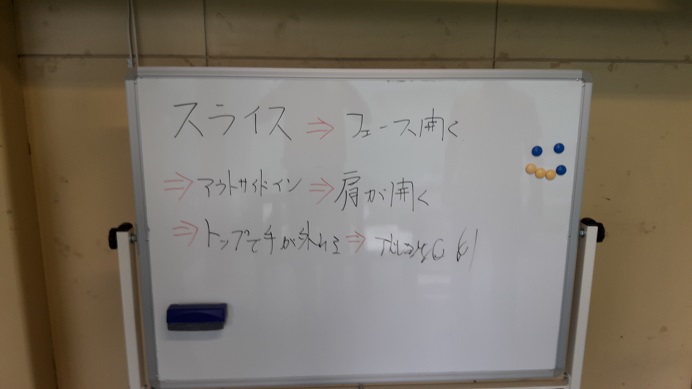 スライス ⇒ フェース開く
⇒ アウトサイドイン ⇒ 肩が開く
⇒ トップで手が外れる ⇒